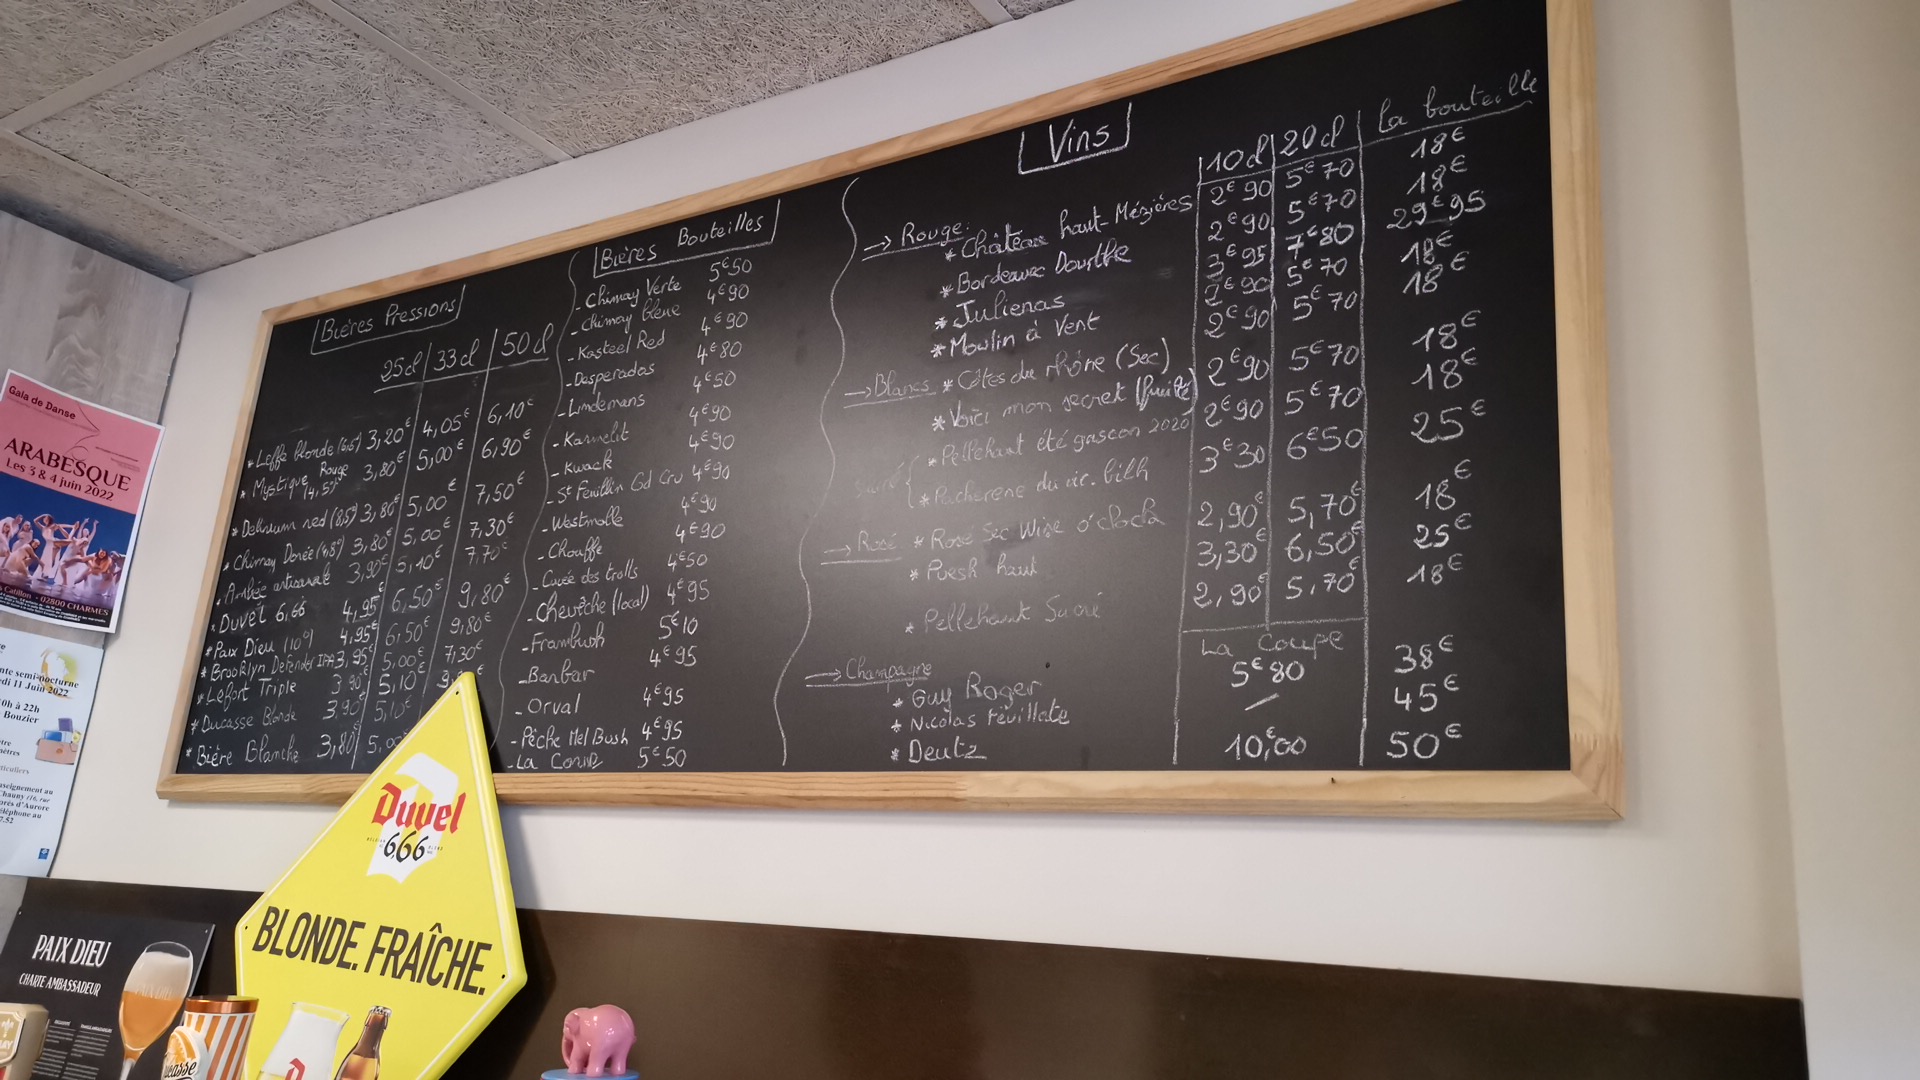 Bières Pressions
25cl 33cl 50cl
* Leffe blonde (6,6°) 3,20€ 4,05€ 6,10€
* Mystique Rouge (4,5°) 3,80€ 5,00€ 6,90€
* Delirium red (8,5°) 3,80€ 5,00€ 7,50€
* Chimay Dorée (4,8°) 3,80€ 5,00€ 7,30€
* Ambrée artisanale 3,90€ 5,10€ 7,70€
* Duvel 6,66 4,95€ 6,50€ 9,80€
* Paix Dieu (10°) 4,95€ 6,50€ 9,80€
* Brooklyn Defender IPA 3,95€ 5,00€ 7,30€
* Lefort Triple 3,90€ 5,10€
* Ducasse Blonde 3,90€ 5,10€
* Bière Blanche 3,80€
Bières Bouteilles
- Chimay Verte 5€50
- Chimay bleue 4€90
- Kasteel Red 4€90
- Desperados 4€80
- Lindemans 4€50
- Karmelit 4€90
- Kwack 4€90
- St Feuillin Gd Cru 4€90
- Westmalle 4€90
- Chouffe 4€90
- Cuvée des trolls 4€50
- Chevêche (local) 4€95
- Frambush 5€10
- Barbar 4€95
- Orval 4€95
- Pêche Mel Bush 4€95
- La Corne 5€50
Vins
10cl 20cl La bouteille
→ Rouge: * Château haut-Mézières 2€90 5€70 18€
* Bordeaux Dourthe 2€90 5€70 18€
* Julienas 3€95 7€80 29€95
* Moulin à Vent 2€90 5€70 18€
2€90 5€70 18€
→ Blancs * Côtes du rhône (Sec) 2€90 5€70 18€
* Voici mon secret (fruité) 2€90 5€70 18€
Sucré { * Pellehaut été gascon 2020 3€30 6€50 25€
* Pacherenc du vic. bilh
→ Rosé * Rosé Sec Wine o'clock 2,90€ 5,70€ 18€
* Puech haut 3,30€ 6,50€ 25€
* Pellehaut Sucré 2,90€ 5,70€ 18€
La coupe
→ Champagne
* Guy Roger 5€80 38€
* Nicolas Feuillate / 45€
* Deutz 10,00 50€
Gala de Danse
ARABESQUE
Les 3 & 4 juin 2022
Catillon - 02800 CHARMES
nte semi-nocturne
edi 11 Juin 2022
0h à 22h
Bouzier
Duvel
6,66
BLONDE. FRAÎCHE.
PAIX DIEU
CHARTE AMBASSADEUR